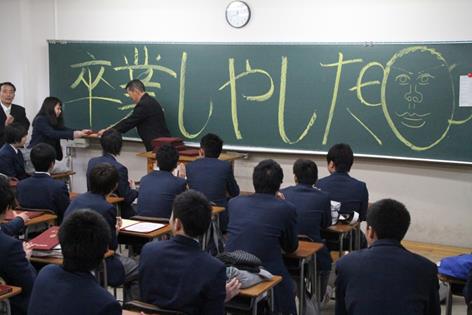 卒業しやした